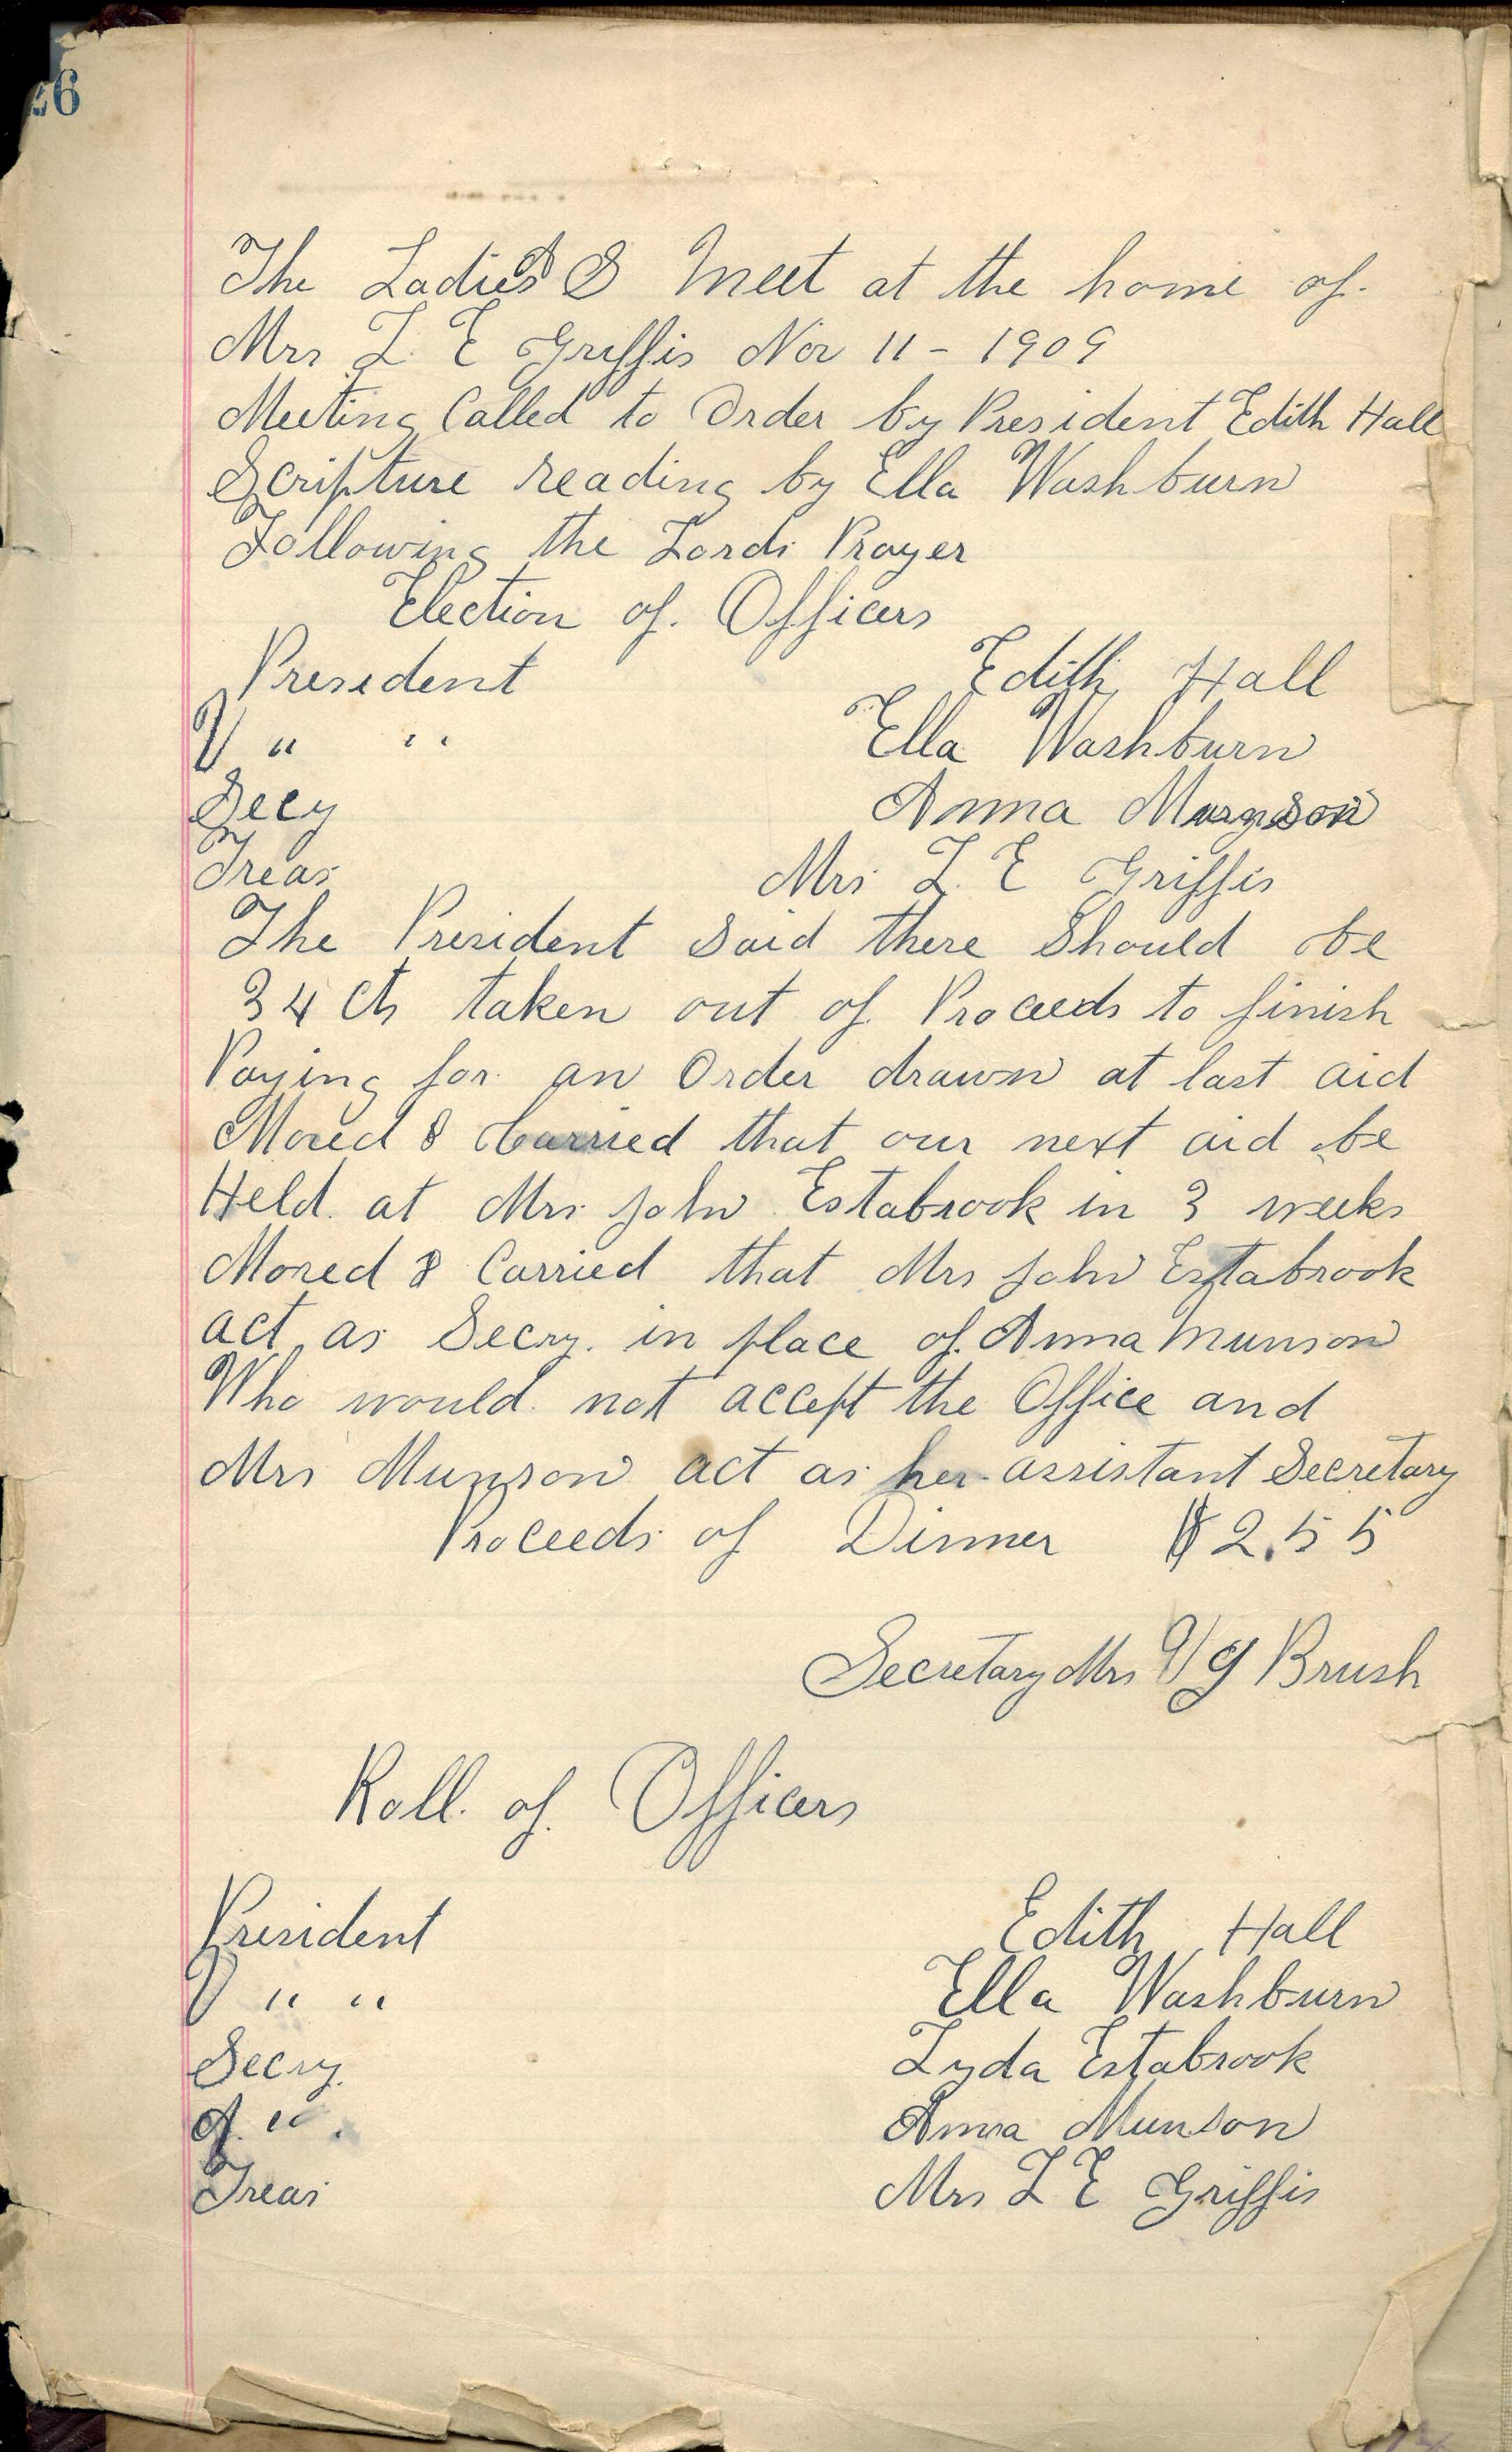 26
The Ladies A S Meet at the home of
Mrs L. E Griffis Nov 11 - 1909
Meeting Called to Order by President Edith Hall
Scripture reading by Ella Washburn
Following the Lords Prayer
Election of Officers
President Edith Hall
V " " Ella Washburn
Secy Anna Munson
Treas Mrs L. E Griffis
The President said there should be
34 cts taken out of Proceeds to finish
Paying for an Order drawn at last aid
Moved & Carried that our next aid be
Held at Mrs John Estabrook in 3 weeks
Moved & Carried that Mrs John Estabrook
act as Secry. in place of Anna Munson
Who would not accept the Office and
Mrs Munson act as her assistant Secretary
Proceeds of Dinner $2.55
Secretary Mrs V G Brush
Roll of Officers
President Edith Hall
V " " Ella Washburn
Secry. Lyda Estabrook
A. " Anna Munson
Treas Mrs L E Griffis